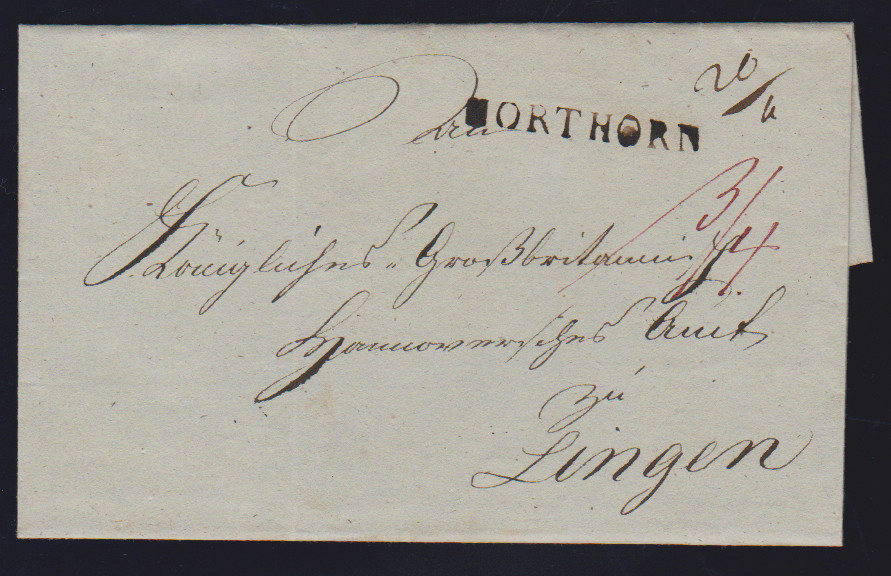 20/6
An
NORTHORN
3/4
Königliches Großbritannisch
Hannoversches Amt
zu
Lingen